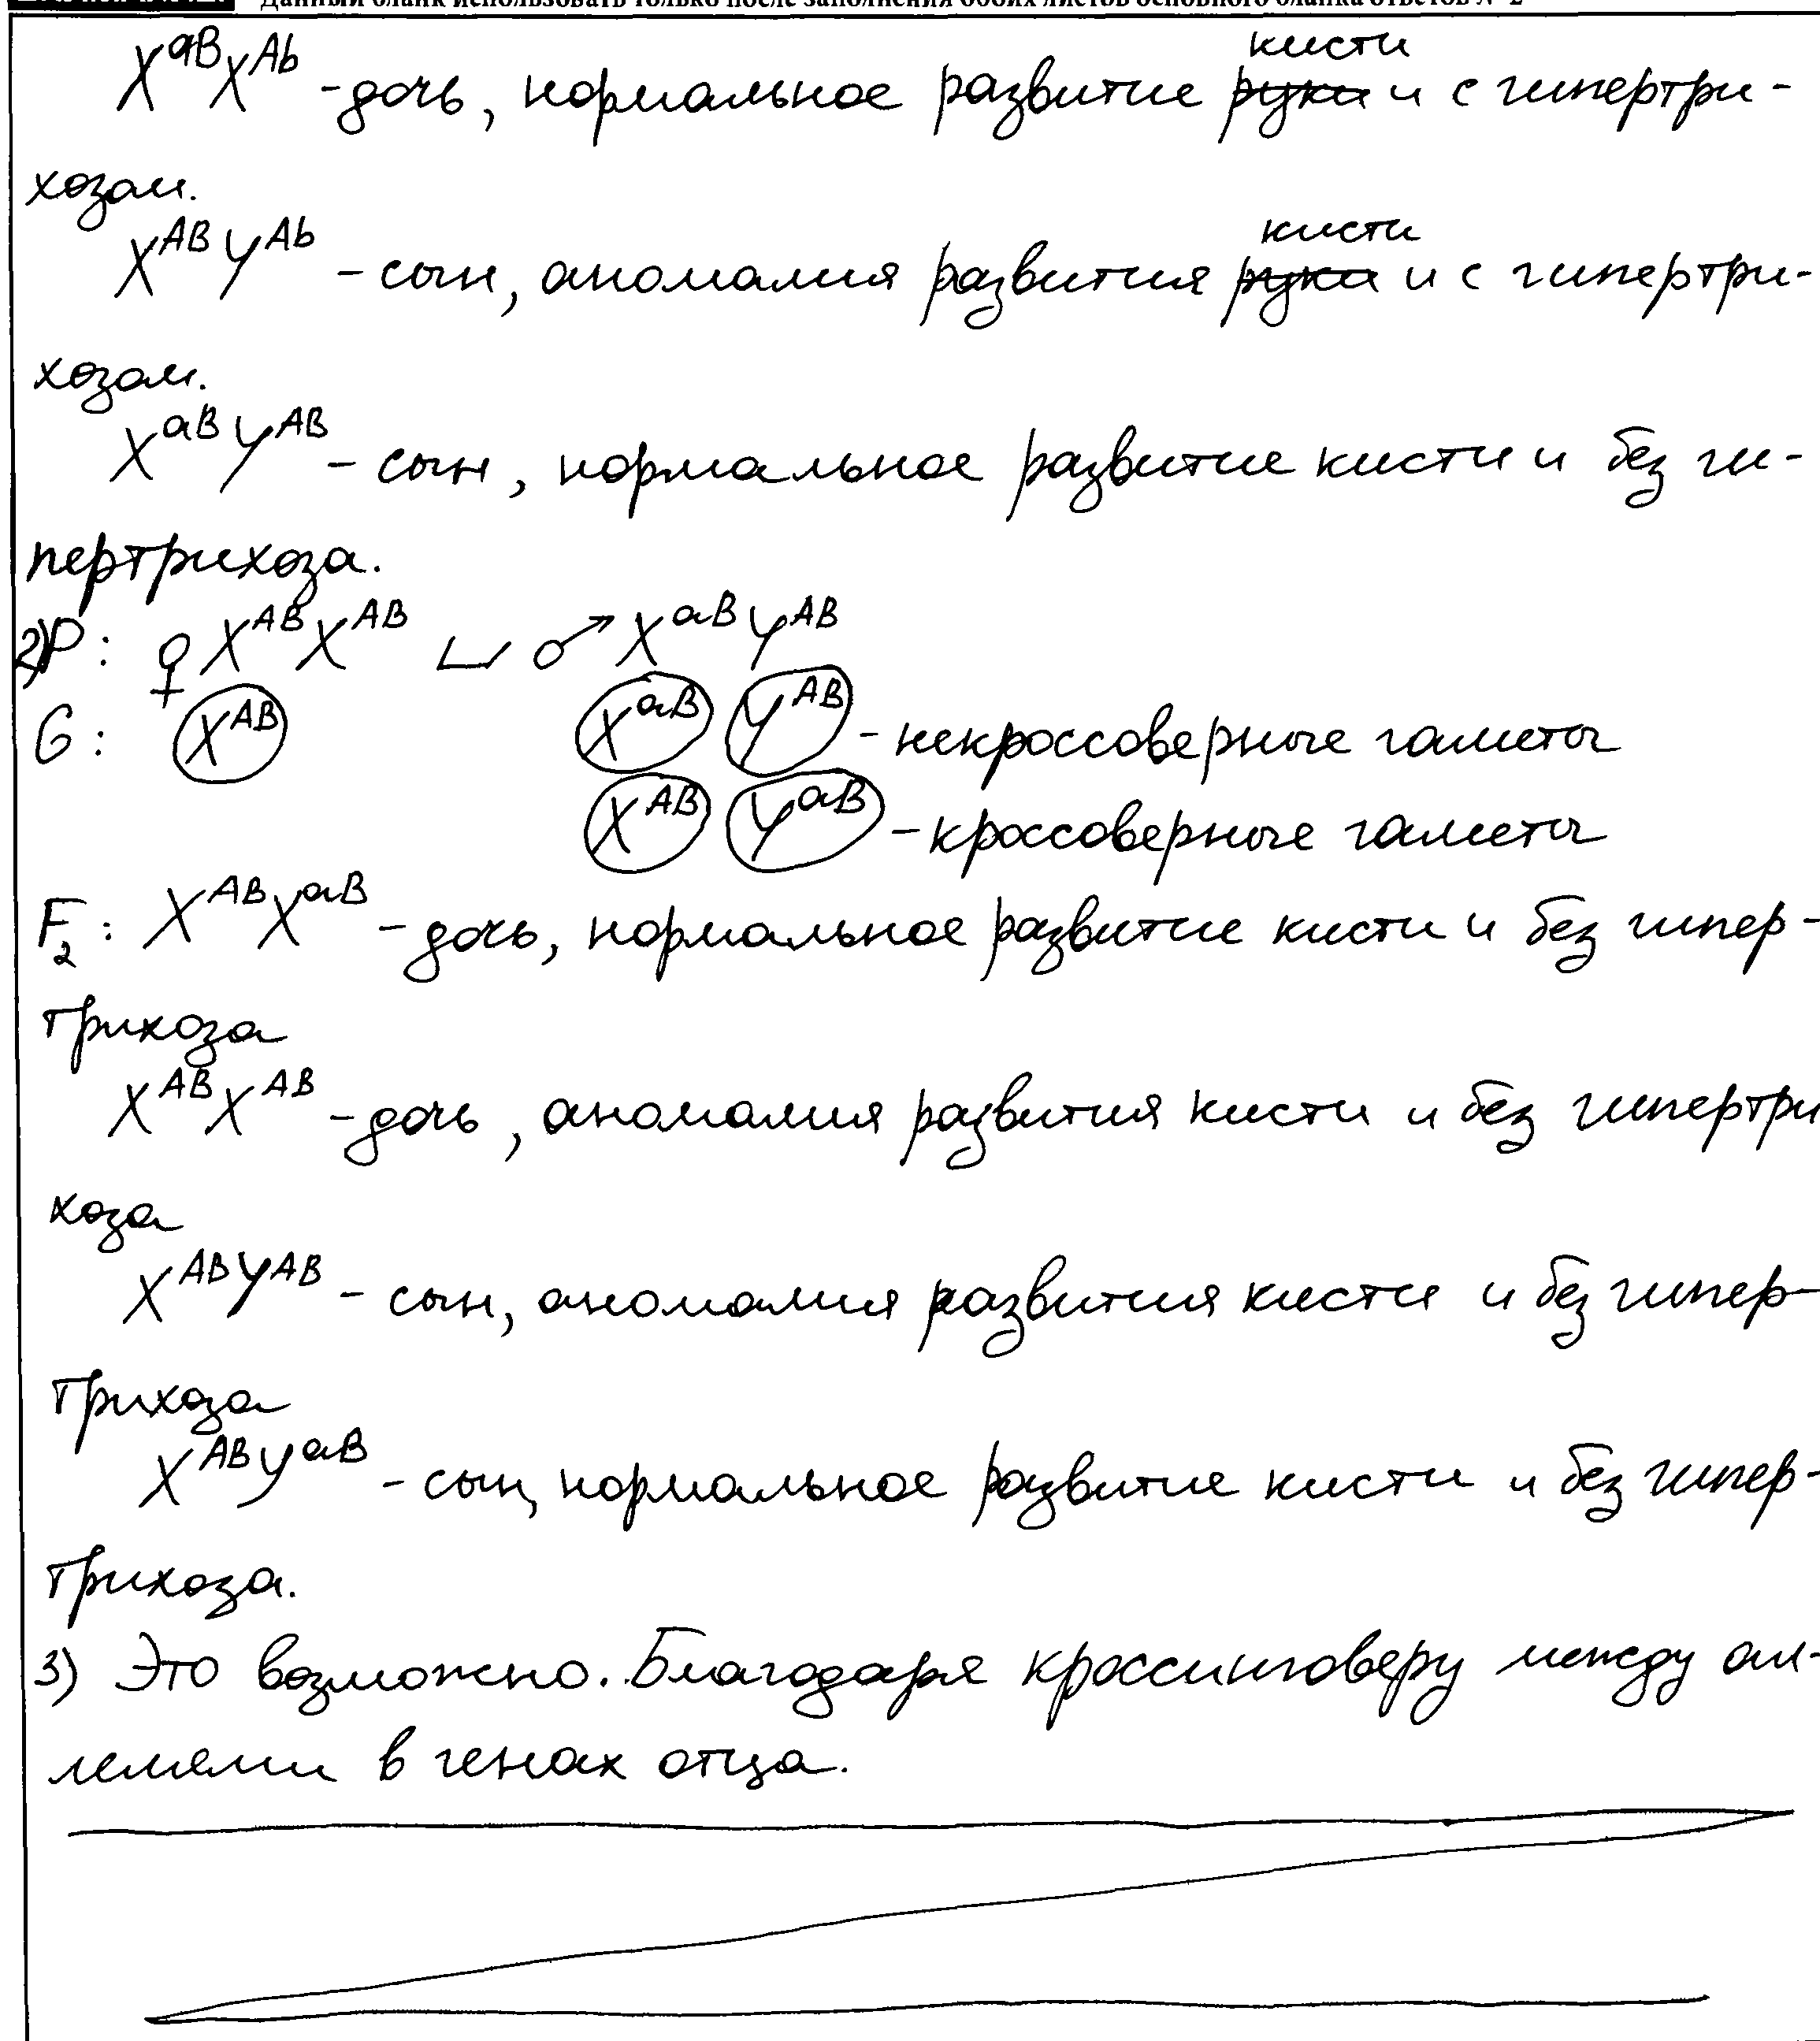 Данный бланк использовать только после заполнения обоих листов основного бланка ответов № 2
кисти
X^aB X^Ab - дочь, нормальное развитие ~~руки~~ и с гипертри-
хозом.
кисти
X^AB Y^Ab - сын, аномалия развития ~~руки~~ и с гипертри-
хозом.
X^aB Y^AB - сын, нормальное развитие кисти и без ги-
пертрихоза.
2) P: ♀ X^AB X^AB × ♂ X^aB Y^AB
G: X^AB X^aB Y^AB - некроссоверные гаметы
X^AB Y^aB - кроссоверные гаметы
F2: X^AB X^aB - дочь, нормальное развитие кисти и без гипер-
трихоза
X^AB X^AB - дочь, аномалия развития кисти и без гипертри
хоза
X^AB Y^AB - сын, аномалия развития кисти и без гипер-
трихоза
X^AB Y^aB - сын, нормальное развитие кисти и без гипер-
трихоза.
3) Это возможно. Благодаря кроссинговеру между ал-
лелями в генах отца.